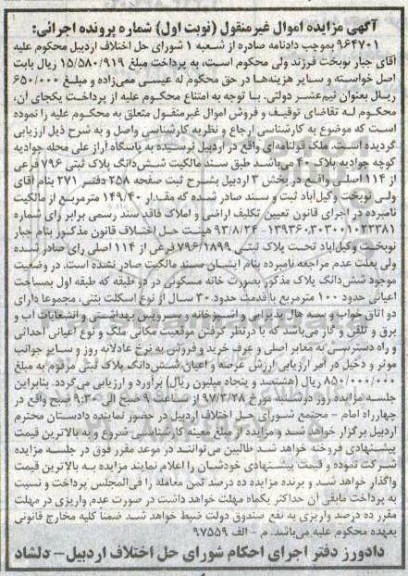 آگهی مزایده اموال غیرمنقول (نوبت اول) شماره پرونده اجرائی:
۹۶۴۷۰۱ بموجب دادنامه صادره از شعبه ۱ شورای حل اختلاف اردبیل محکوم علیه
آقای جبار نوبخت فرزند ولی محکوم است، به پرداخت مبلغ ۱۵/۵۸۰/۹۱۹ ریال بابت
اصل خواسته و سایر هزینه‌ها در حق محکوم له عیسی معی‌زاده و مبلغ ۶۵۰/۰۰۰
ریال بعنوان نیم‌عشر دولتی. با توجه به امتناع محکوم علیه از پرداخت یکجای آن،
محکوم له تقاضای توقیف و فروش اموال غیرمنقول متعلق به محکوم علیه را نموده
است که موضوع به کارشناسی ارجاع و نظریه کارشناسی واصل و به شرح ذیل ارزیابی
گردیده است. ملک قولنامه‌ای واقع در اردبیل نرسیده به پاسگاه آراز علی محله جوادیه
کوچه جوادیه پلاک ۴۰ می‌باشد. طبق سند مالکیت شش‌دانگ پلاک ثبتی ۷۹۶ فرعی
از ۱۱۴ اصلی واقع در بخش ۳ اردبیل بشرح ثبت صفحه ۲۵۸ دفتر ۲۷۱ بنام آقای
ولی نوبخت وکیل‌آباد ثبت و سند صادر شده که مقدار ۱۴۹/۴۰ مترمربع از مالکیت
نامبرده در اجرای قانون تعیین تکلیف اراضی و املاک فاقد سند رسمی برابر رای شماره
۱۳۹۳۶۰۳۰۳۰۰۱۰۲۳۸۱- ۹۳/۸/۲۶ هیئت حل اختلاف قانون مذکور بنام جبار
نوبخت وکیل‌آباد تحت پلاک ثبتی ۷۹۶/۱۸۹۹ فرعی از ۱۱۴ اصلی رای صادر شده
ولی بعلت عدم مراجعه نامبرده بنام ایشان سند مالکیت صادر نشده است. در وضعیت
موجود شش‌دانگ پلاک مذکور بصورت خانه مسکونی در دو طبقه که طبقه اول بمساحت
اعیانی حدود ۱۰۰ مترمربع با قدمت حدود ۳۰ سال از نوع اسکلت بتنی، مجموعا دارای
دو اتاق خواب و سه هال پذیرایی و آشپزخانه و سرویس بهداشتی و انشعابات آب و
برق و تلفن و گاز می‌باشد که با درنظر گرفتن موقعیت مکانی ملک و نوع اعیانی احداثی
و راه دسترسی به معابر اصلی و عرف خرید و فروش به نرخ عادلانه روز و سایر جوانب
موثر و دخیل در امر ارزیابی ارزش عرصه و اعیان شش‌دانگ پلاک ثبتی مرقوم به مبلغ
۸۵۰/۰۰۰/۰۰۰ ریال (هشتصد و پنجاه میلیون ریال) برآورد و ارزیابی می‌گردد. بنابراین
جلسه مزایده روز دوشنبه مورخ ۹۷/۳/۲۸ از ساعت ۹ صبح الی ۹:۳۰ صبح واقع در
چهارراه امام - مجتمع شورای حل اختلاف اردبیل در حضور نماینده دادستان محترم
اردبیل برگزار خواهد شد و مزایده از مبلغ هیئت کارشناسی شروع و به بالاترین قیمت
پیشنهادی فروخته خواهد شد طالبین می‌توانند در موعد مقرر فوق در جلسه مزایده
شرکت نموده و قیمت پیشنهادی خودشان را اعلام نمایند مزایده به بالاترین قیمت
واگذار خواهد شد و برنده مزایده ده درصد ثمن معامله را فی‌المجلس پرداخت و نسبت
به پرداخت مابقی آن حداکثر یکماه مهلت خواهد داشت در صورت عدم واریزی در مهلت
مقرر ده درصد واریزی به نفع صندوق دولت ضبط خواهد شد. ضمنا کلیه مخارج قانونی
بعهده محکوم علیه می‌باشد. م - الف ۹۷۵۵۹
دادورز دفتر اجرای احکام شورای حل اختلاف اردبیل- دلشاد